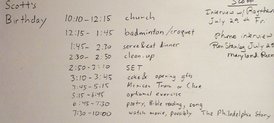 Scott's
Birthday
10:10 - 12:15 church
12:15 - 1:45 badminton/croquet
1:45 - 2:30 serve & eat dinner
2:30 - 2:50 clean-up
2:50 - 3:10 SET
3:10 - 3:45 cake & opening gifts
3:45 - 5:15 Mexican Train or Clue
5:15 - 6:45 optional exercise
6:45 - 7:30 poetry, Bible reading, song
7:30 - 10:00 watch movie, possibly The Philadelphia Story
Scott
Interview w/
July 29th Fr.
Phone interview
July 28
Maryland